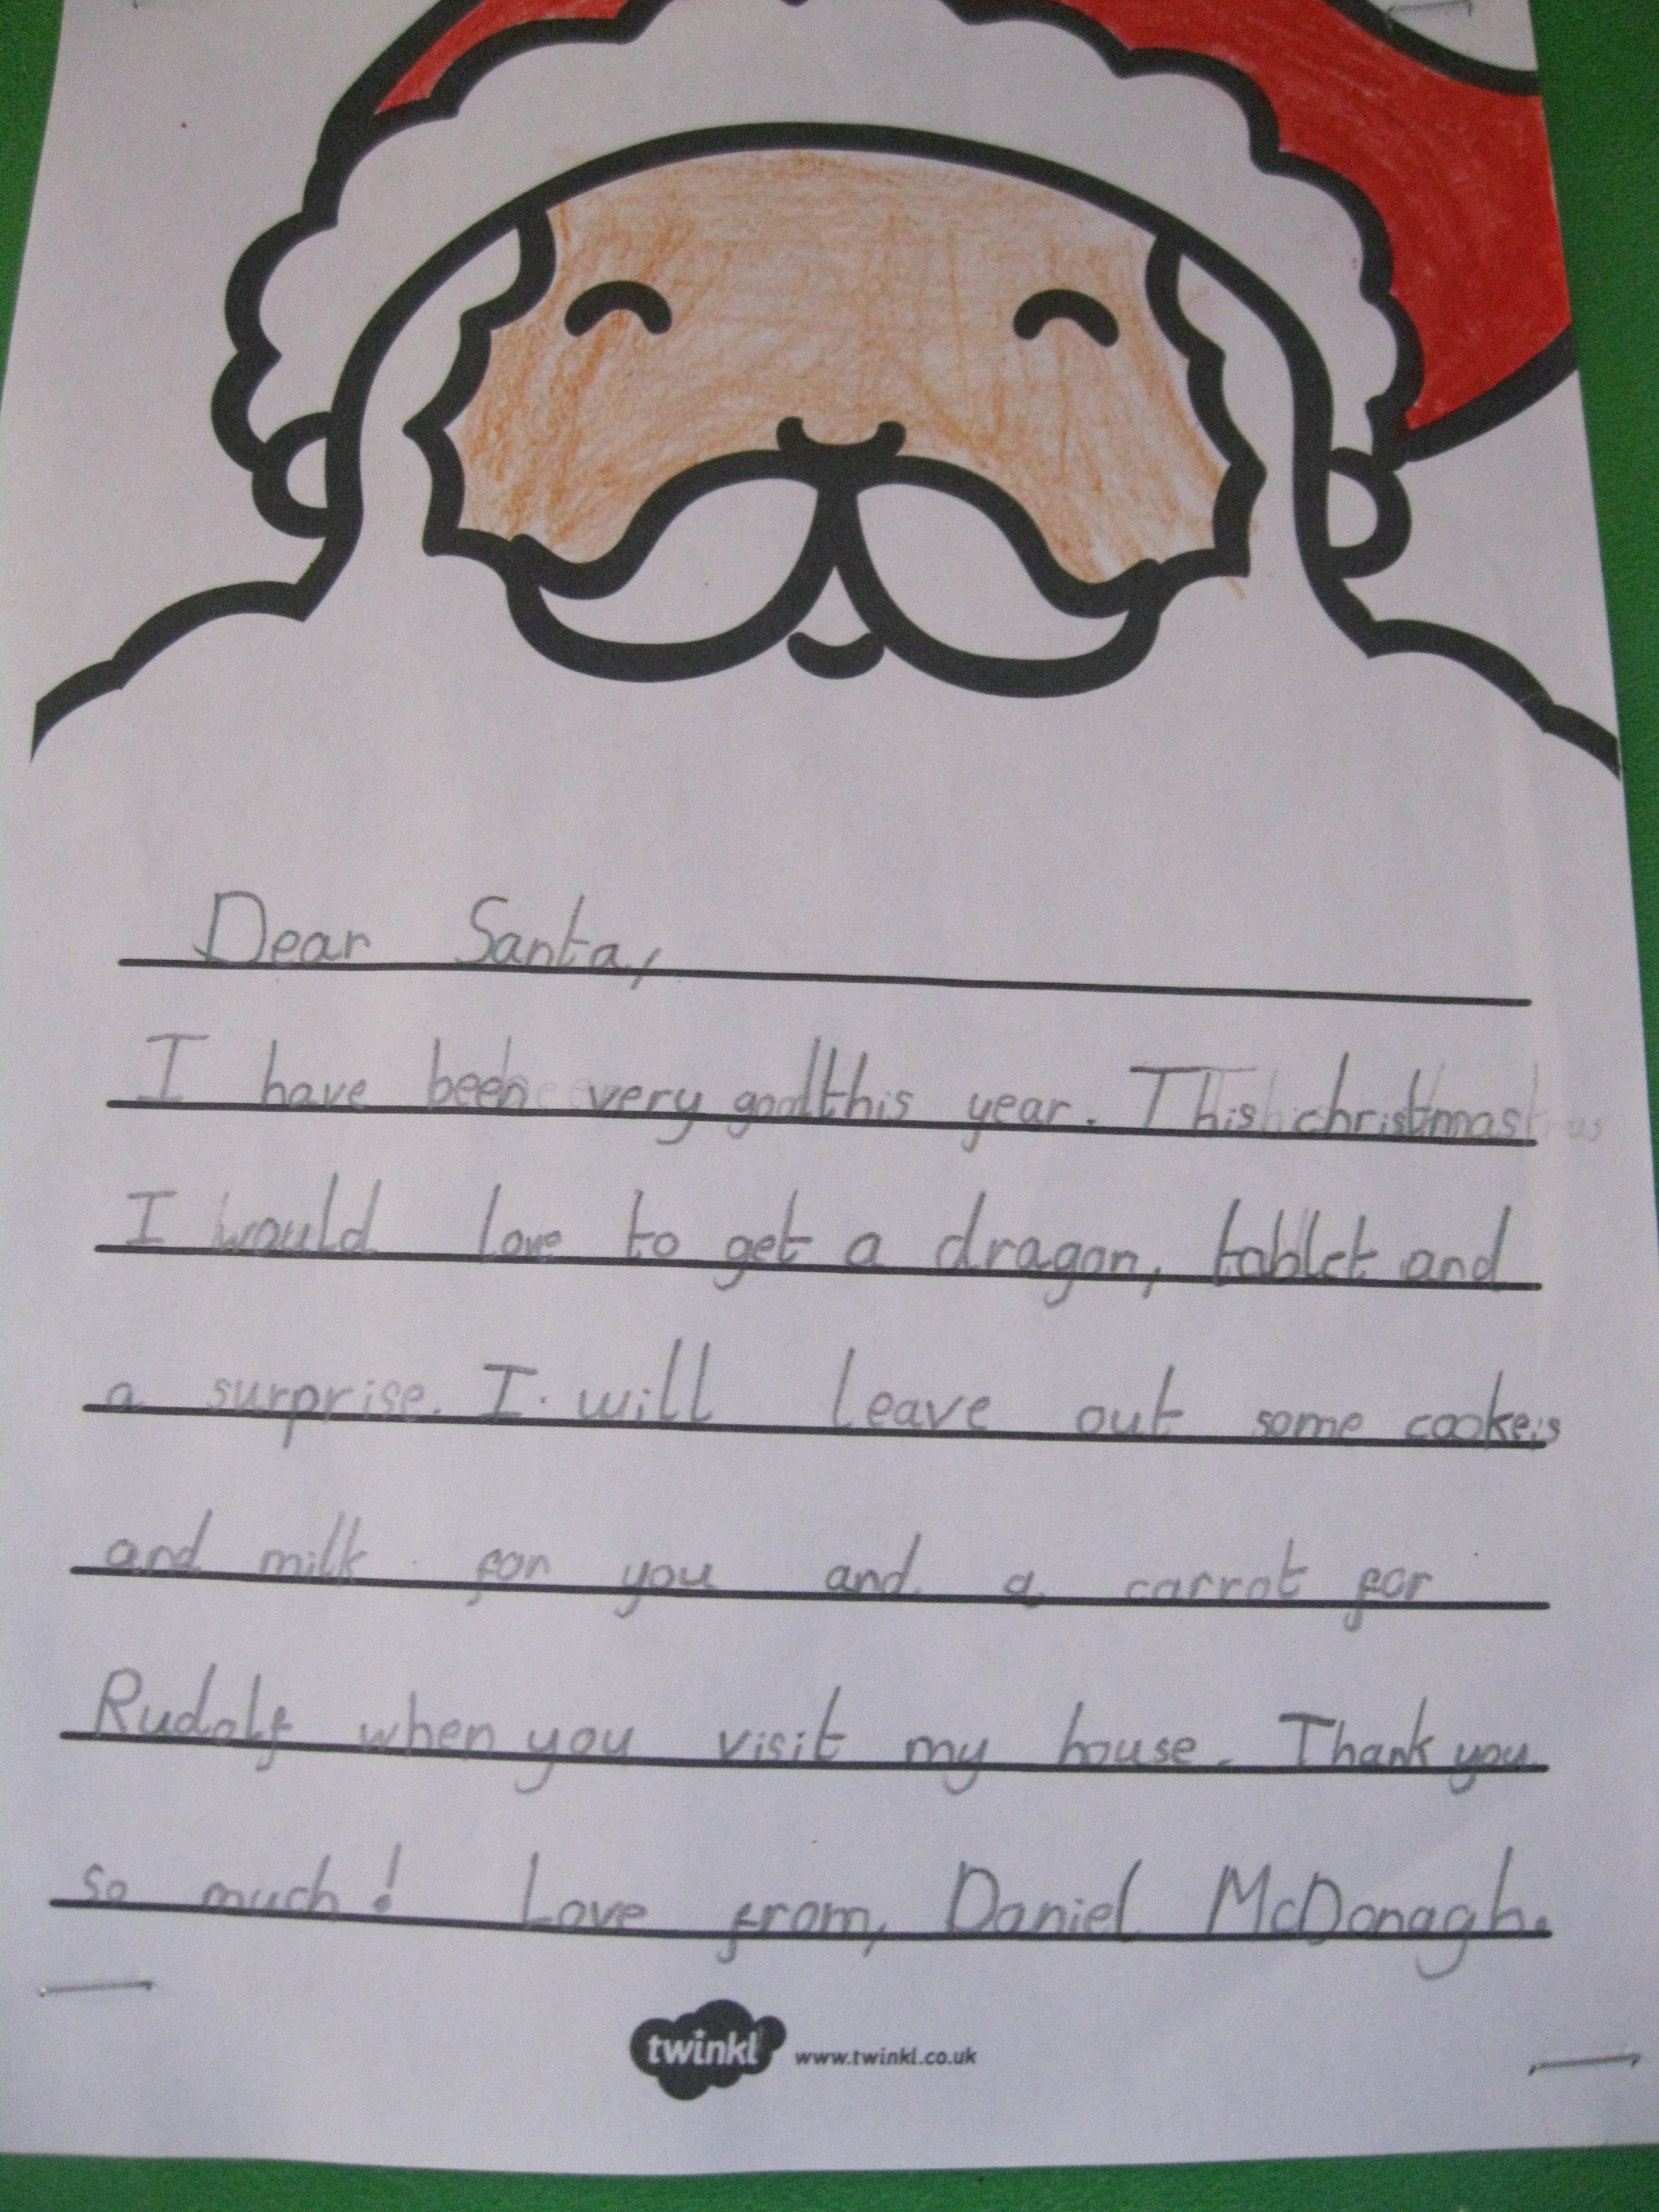 Dear Santa,
I have been very good this year. This christmas
I would love to get a dragon, tablet and
a surprise. I will leave out some cookeis
and milk for you and a carrot for
Rudolf when you visit my house. Thank you
so much! Love from, Daniel McDonagh.
twinkl www.twinkl.co.uk